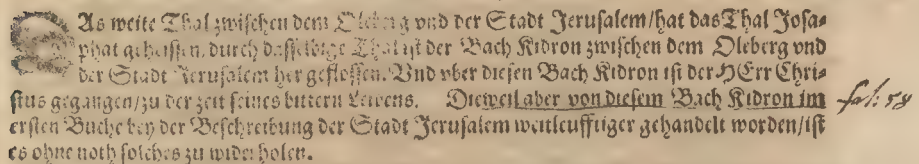 DAs weite Thal zwischen dem Oleberg vnd der Stadt Jerusalem/hat das Thal Josa-
phat geheissen, durch dasselbige Thal ist der Bach Kidron zwischen dem Oleberg vnd
der Stadt Jerusalem her geflossen. Vnd vber diesen Bach Kidron ist der HErr Chri-
stus gegangen/zu der zeit seines bittern Leidens. Dieweil aber von diesem Bach Kidron im
ersten Buche bey der Beschreibung der Stadt Jerusalem weitleufftiger gehandelt worden/ist
es ohne noth solches zu widerholen.
fol: 58